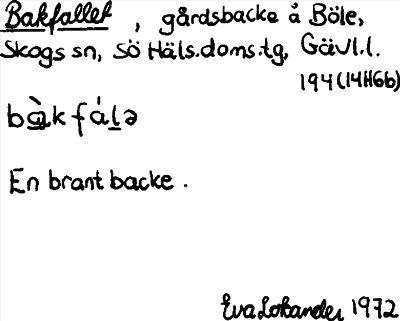 Bakfallet, gårdsbacke å Böle,
Skogs sn, Sö Häls.doms.tg, Gävl.l.
194 (14H6b)
bàkfálə
En brant backe.
Eva Lokander 1972